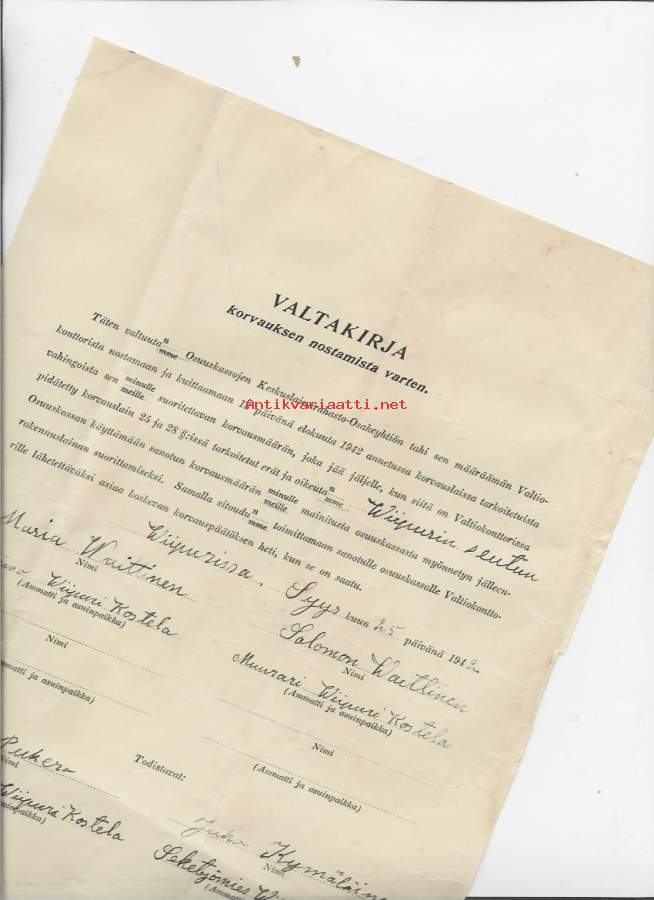 VALTAKIRJA
korvauksen nostamista varten.
Täten valtuuta n/mme Osuuskassojen Keskuslainarahasto-Osakeyhtiön tahi sen määräämän Valtio-
konttorista nostamaan ja kuittaamaan päivänä elokuuta 1942 annetussa korvauslaissa tarkoitetuista
vahingoista sen minulle/meille suoritettavan korvausmäärän, joka jää jäljelle, kun siitä on Valtiokonttorissa
pidätetty korvauslain 25 ja 28 §:issä tarkoitetut erät ja oikeuta n/mme Wiipurin seutun
Osuuskassan käyttämään sanotun korvausmäärän minulle/meille mainitusta osuuskassasta myönnetyn jälleen-
rakennuslainan suorittamiseksi. Samalla sitoudu n/mme toimittamaan sanotulle osuuskassalle Valtiokontto-
rille lähetettäväksi asiaa koskevan korvauspäätöksen heti, kun se on saatu.
Wiipurissa, Syys kuun 25 päivänä 1942.
Maria Waittinen
Nimi
Wiipuri Kostela
(Ammatti ja asuinpaikka)
Salomon Waittinen
Nimi
Muurari Wiipuri Kostela
(Ammatti ja asuinpaikka)
Nimi
Ammatti ja asuinpaikka)
Nimi
(Ammatti ja asuinpaikka)
Todistavat:
Pukero
Nimi
Wiipuri Kostela
asuinpaikka)
Juho Kymäläine
Nimi
Sekatyömies Wi
(Ammatti
Antikvariaatti.net